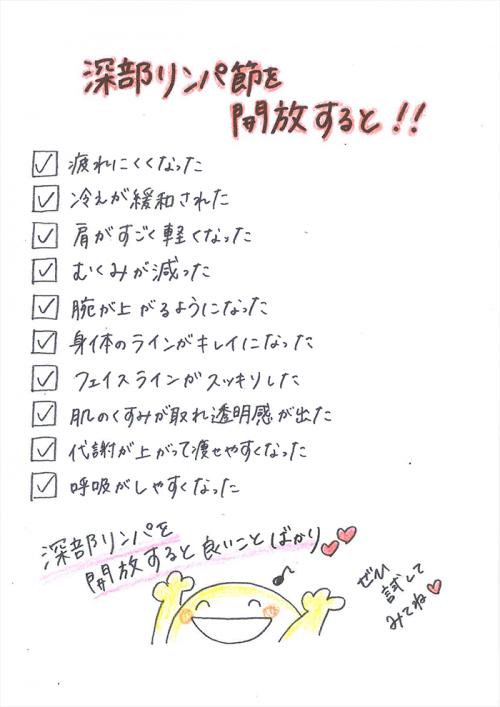 深部リンパ節を
開放すると!!
疲れにくくなった
冷えが緩和された
肩がすごく軽くなった
むくみが減った
腕が上がるようになった
身体のラインがキレイになった
フェイスラインがスッキリした
肌のくすみが取れ透明感が出た
代謝が上がって痩せやすくなった
呼吸がしやすくなった
深部リンパを
開放すると良いことばかり
ぜひ
試して
みてね